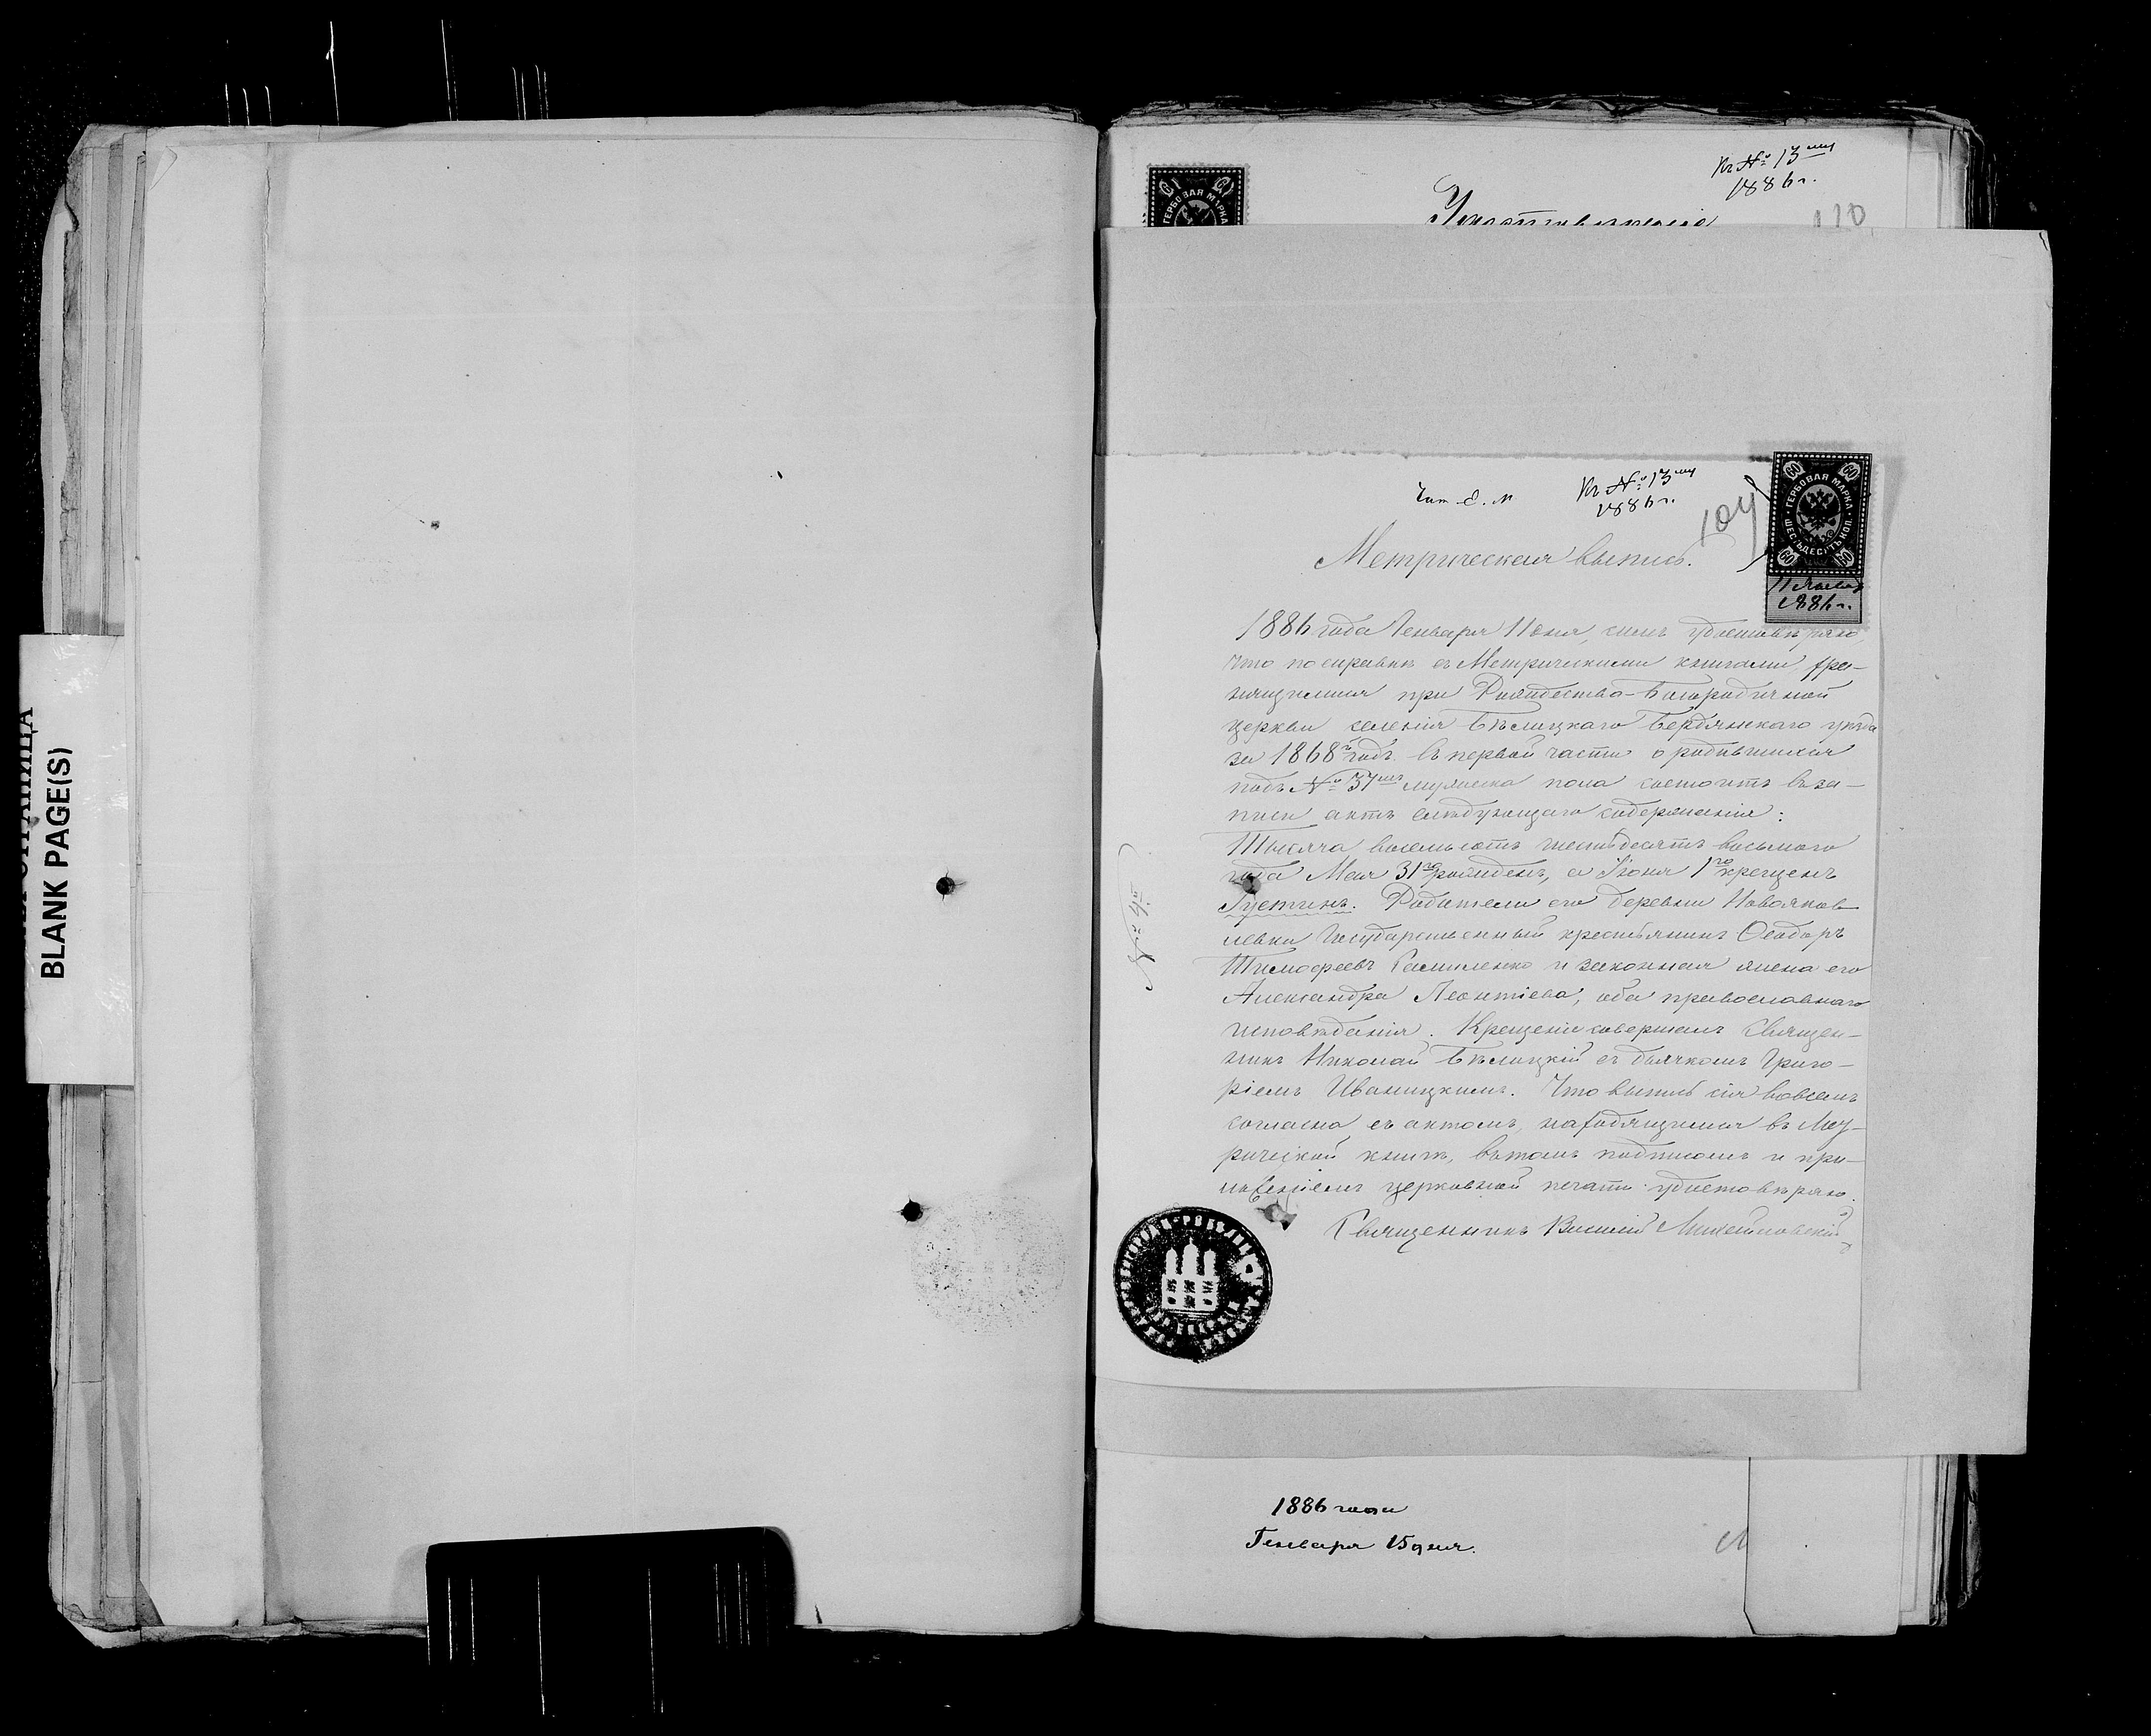 СТРАНИЦА
BLANK PAGE(S)
Къ № 13му
1886 г.
Удостовереніе
110
ГЕРБОВАЯ МАРКА
Чит. Е. М
Къ № 13му
1886 г.
104
ГЕРБОВАЯ МАРКА
ШЕСТЬДЕСЯТЪ КОП.
60 60 60 60
11 Января
1886 г.
Метрическая выпись.
1886 года Генваря 11 дня, симъ удостовѣряю,
что по справкѣ съ Метрическими книгами хра-
нящимися при Рождество-Богородичной
церкви селенія Бѣлицкаго Бердянскаго уѣзда
за 1868й годъ въ первой части о родившихся
подъ № 37мъ мужеска пола состоитъ въ за-
писи актъ слѣдующаго содержанія:
Тысяча восемьсотъ шестьдесятъ восьмого
года Мая 31го рожденъ, а Іюня 1го крещенъ
Густинъ. Родители его деревни Новояков-
левки Государственный крестьянинъ Ѳеодоръ
Тимофеевъ и законная жена его
Александра Леонтіева, оба православнаго
исповѣданія. Крещеніе совершалъ Священ-
никъ Николай Бѣлицкій съ дьячкомъ Григо-
ріемъ Иваницкимъ. Что выпись сія во всемъ
согласна съ актомъ, находящимся въ Мет-
рической книгѣ, въ томъ подписомъ и при-
ложеніемъ церковной печати удостовѣряю.
Священникъ Василій
1886 года
Генваря 15 дня.